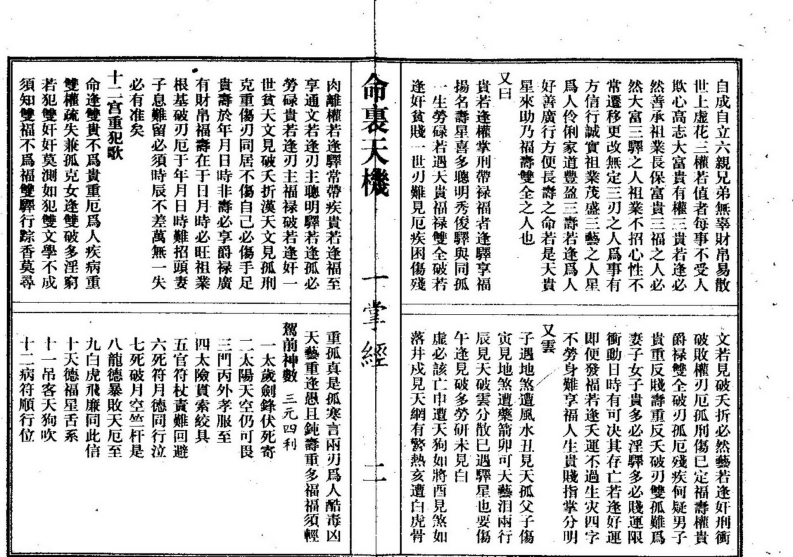 自成自立六親兄弟無辜財帛易散
世上虛花三權若值者每事不受人
欺心高志大富貴有權三貴若逢必
然善承祖業長保富貴三福之人必
然大富三驛之人祖業不招心性不
常遷移更改無定三刃之人爲事有
方信行誠實祖業茂盛三藝之人星
爲人伶俐家道豐盈三壽若逢爲人
好善廣行方便長壽之命若是天貴
星來助乃福壽雙全之人也
又曰
貴若逢權掌刑帶祿福者逢驛享福
揚名壽星喜多聰明秀俊驛與同孤
一生勞碌若遇天貴福祿雙全破若
逢奸貧賤一世刃難見厄疾困傷殘
文若見破夭折必然藝若逢奸刑衝
破敗權刃厄孤刑傷已定福壽權貴
爵祿雙全破刃孤厄殘疾何疑男子
貴重反賤壽重反夭破刃雙孤難爲
妻子女子貴多必淫驛多必賤運限
衝動日時有可決其存亡若逢好運
即便發福若逢夭運不過生灾四字
不勞身難享福人生貴賤指掌分明
又雲
子遇地煞遭風水丑見天孤父子傷
寅見地煞遭藥箭卯可天藝泪兩行
辰見天破雲分散巳遇驛星也要傷
午逢見破多勞研未見白
虛必該亡申遭天狗如將酉見煞如
落井戍見天網有驚熱亥遭白虎骨
命裏天機
一掌經
二
肉離權若逢驛常帶疾貴若逢福至
享通文若逢刃主聰明驛若逢孤必
勞碌貴若逢刃主福祿破若逢奸一
世貧天文見破夭折漢天文見孤刑
克重傷刃同居不傷自己必傷手足
貴壽於年月日時非壽必享爵祿廣
有財帛福壽在于日月時必旺祖業
根基破刃厄于年月日時難招頭妻
子息難留必須時辰不差萬無一失
必有准矣
十二宫重犯歌
命逢雙貴不爲貴重厄爲人疾病重
雙權疏失兼孤克女逢雙破多淫窮
若犯雙奸奸莫測如犯雙文學不成
須知雙福不爲福雙驛行踪香莫尋
重孤真是孤寒言兩刃爲人酷毒凶
天藝重逢愚且鈍壽重多福福須輕
駕前神數 三元四利
一太歲劍鋒伏死寄
二太陽天空仍可畏
三門丙外孝服至
四太險貫索絞具
五官符杖責難回避
六死符月德同行泣
七死破月空竺杆是
八龍德暴敗天厄至
九白虎飛廉同此信
十天德福星舌系
十一吊客天狗吹
十二病符順行位